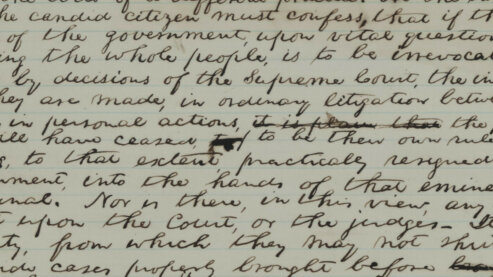 the candid citizen must confess, that if th
of the government, upon vital question
ing the whole people, is to be irrevocab
by decisions of the Supreme Court, the in
hey are made, in ordinary litigation betw
in personal actions, it is plain that the
ill have ceased, to be their own rule
s, to that extent, practically resigned
nment, into the hands of that emine
unal. Nor is there, in this view, any
t upon the Court, or the judges—
ty, from which they may not shr
ide cases properly brought before